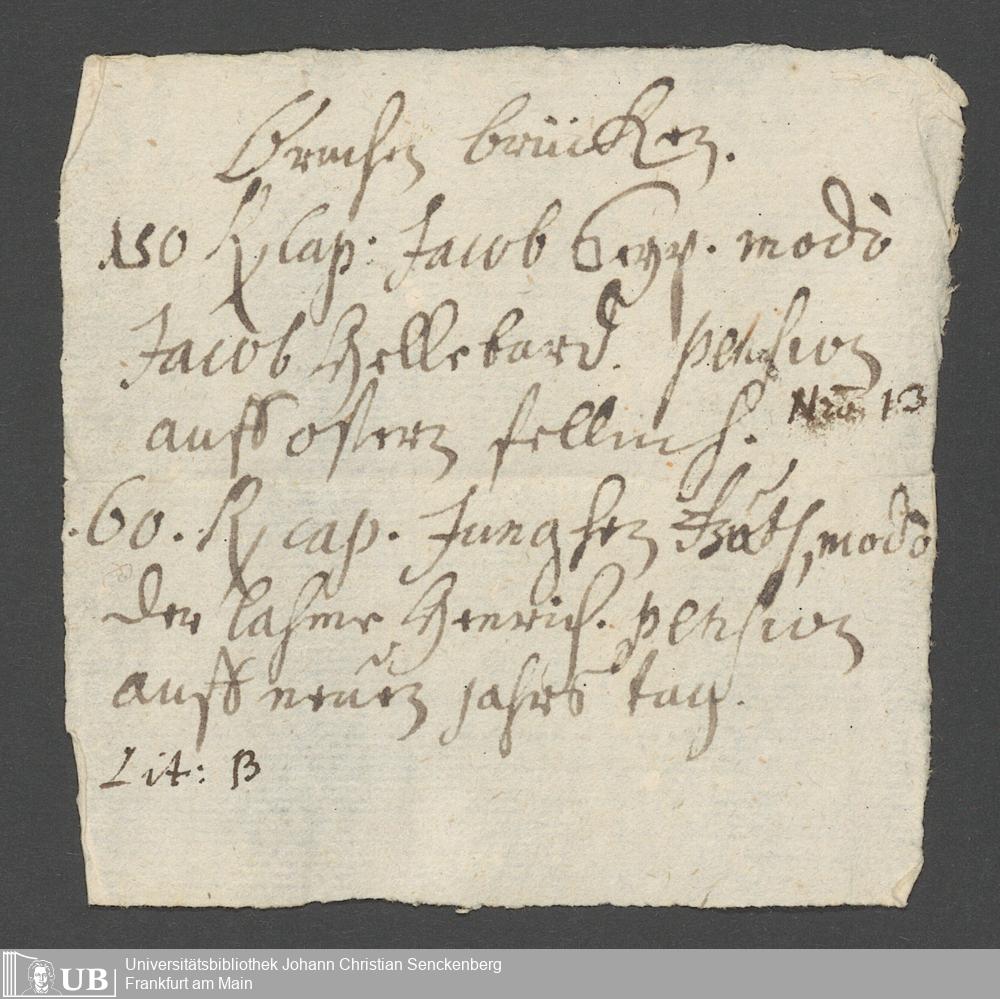 Brachen brücken.
150 R cap: Jacob modò
Jacob Hellebard. pension
auff ostern fellich. Nro. 13
60. R cap. Junghen modò
der lahme Henrich. pension
auff neuen jahrs tag.
Lit: B
UB Universitätsbibliothek Johann Christian Senckenberg
Frankfurt am Main